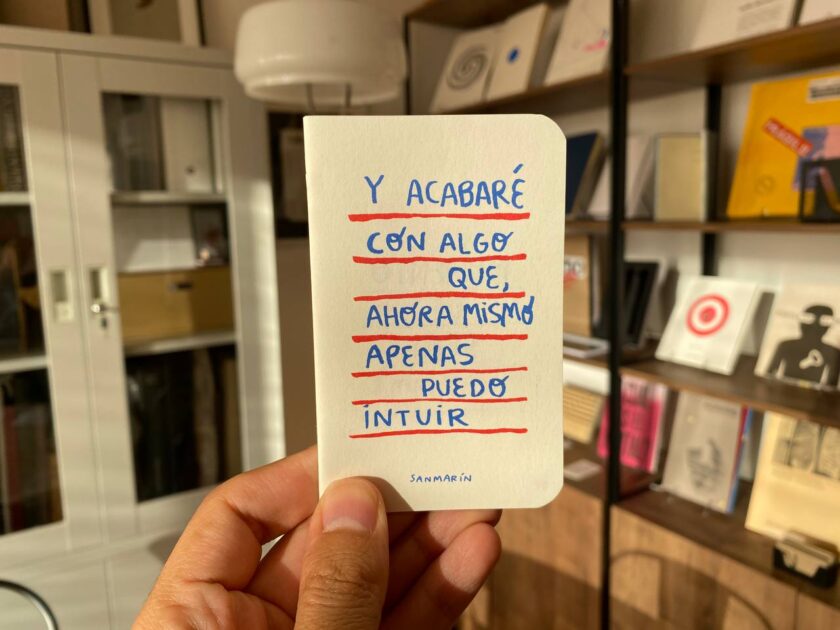 Y ACABARÉ
CON ALGO
QUE,
AHORA MISMO
APENAS
PUEDO
INTUIR
SANMARÍN
FRAGILE